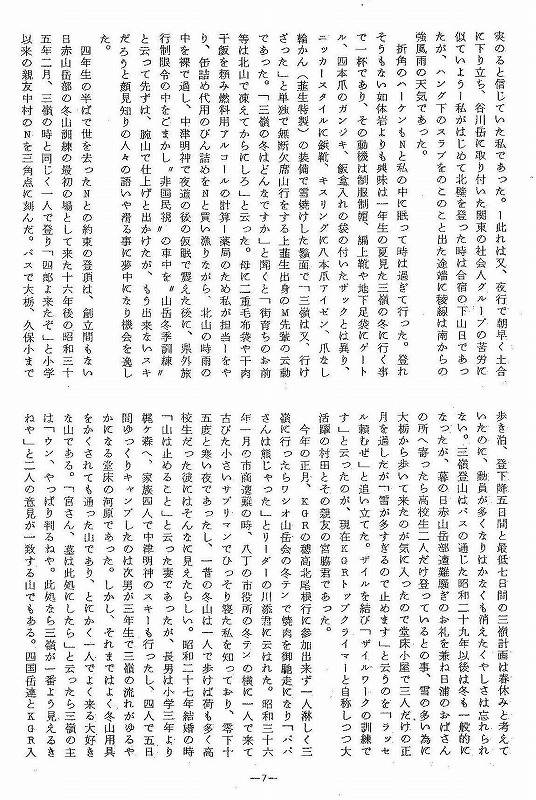 実のると信じていた私であった。―此れは又、夜行で朝早く土合
に下り立ち、谷川岳に取り付いた関東の社会人グループの苦労に
似ていよう―私がはじめて北壁を登った時は合宿の下山日であっ
たが、ハング下のスラブをのこのこと出た途端に稜線は南からの
強風雨の天気であった。
折角のハーケンもNと私の中に眠って時は過ぎて行った。登れ
そうもない如体岩よりも興味は一年生の夏見た三嶺の冬に行く事
で一杯であり、その動機は制服制帽、編上靴や地下足袋にゲート
ル、四本爪のガンジキ、飯盒入れの袋の付いたザックとは異り、
ニッカースタイルに鋲靴、キスリングに八本爪アイゼン、爪なし
輪かん（韮生特製）の装備で雪焼けした顔面で「三嶺は又、行け
ざった」と単独で無断欠席山行をする上韮生出身のM先輩の云動
であった。「三嶺の冬はどんなですか」と聞くと「街育ちのお前
等は北山で凍えてからにしろ」と云った。母に二重毛布袋や干肉
干飯を頼み燃料用アルコールの計算―薬局のため私が担当―をや
り、缶詰め代用のびん詰めをNと買い漁りながら、北山の時雨の
中を裸で過し、中津明神で夜道の後の仮眠で震えた後に、県外旅
行制限令の中をごまかし〝非国民視〟の車中を〝山岳冬季訓練〟
と云って先ずは、腕山で仕上げと出かけたが、もう出来ないスキ
だろうと顔見知りの人々の誘いや滑る事に夢中になり機会を逸し
た。
四年生の半ばで世を去ったNとの約束の登頂は、創立間もない
日赤山岳部の冬山訓練の最初の場として来た十六年後の昭和三十
五年二月、三嶺の時と同じく一人で登り「四郎よ来たぞ」と小学
以来の親友中村のNを三角点に刻んだ。バスで大栃、久保小まで
歩き泊、登下降五日間と最低七日間の三嶺計画は春休みと考えて
いたのに、動員が多くなりはかなくも消えたくやしさは忘れられ
ない。三嶺登山はバスの通じた昭和二十九年以後は冬も一般的に
なったが、暮の日赤山岳部遭難騒ぎのお礼を兼ね日浦のおばさん
の所へ寄ったら高校生二人だけ登っているとの事、雪の多い為に
大栃から歩いて来たのが気に入ったので堂床小屋で三人だけの正
月を過したが「雪が多すぎるので止めます」と云うのを「ラッセ
ル頼むぜ」と追い立てた。ザイルを結び「ザイルワークの訓練で
す」と云ったのが、現在KGRトップクライマーと自称しつつ大
活躍の村田とその親友の宮脇君であった。
今年の正月、KGRの穂高北尾根行に参加出来ず一人淋しく三
嶺に行ったらワンオ山岳会の冬テンで焼肉を御馳走になり「パパ
さんは熊じゃった」とリーダーの川添君に云はれた。昭和三十六
年一月の市商遭難の時、八丁の市役所の冬テンの横に一人で来て
古びた小さいサブリマンでひっそり寝た私を知っており、零下十
五度と寒い夜であったし、一昔の冬山は一人で歩けば荷も多く高
校生だった彼にはそんなに見えたらしい。昭和二十七年結婚の時
「山は止めること」と云った妻であったが、長男は小学三年より
梶ケ森へ、家族四人で中津明神のスキーも行ったし、四人で五日
間ゆっくりキャンプしたのは次男が三年生で三嶺の流れがゆるや
かになる堂床の河原であった。しかし、それまではよく冬山用具
をかくされても通った山であり、とにかく一人でよく来る大好き
な山である。「宮さん、墓は此処にしたら」と云ったら三嶺の主
は「ウン、やっぱり判るねや。此処なら三嶺が一番よう見えるき
ねや」と二人の意見が一致する山でもある。四国岳連とKGR入
―7―